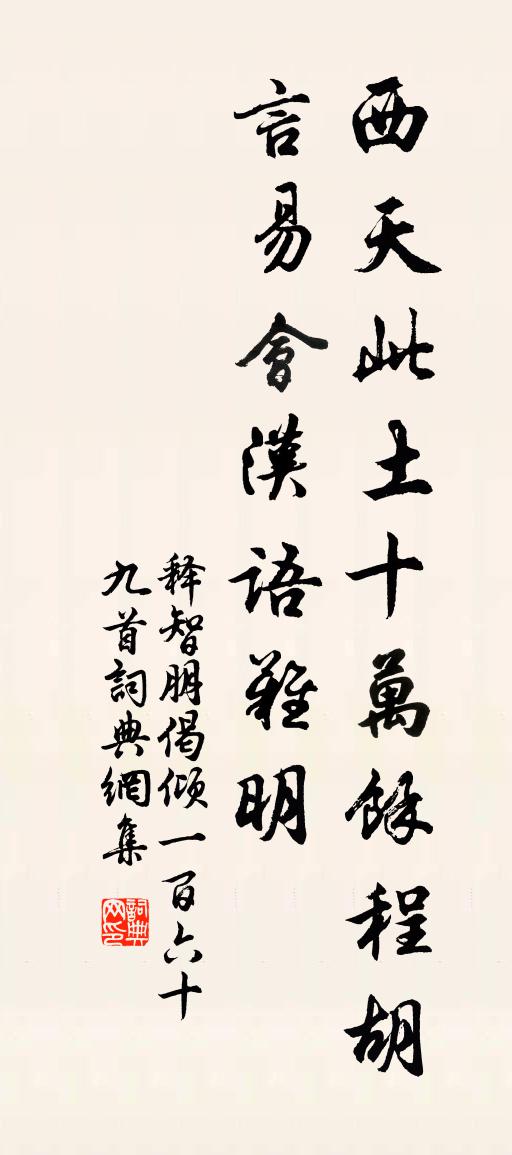 西天此土十萬餘程胡
言易會漢語難明
释智朋偈倾一百六十
九首詞典網集
詞典网印